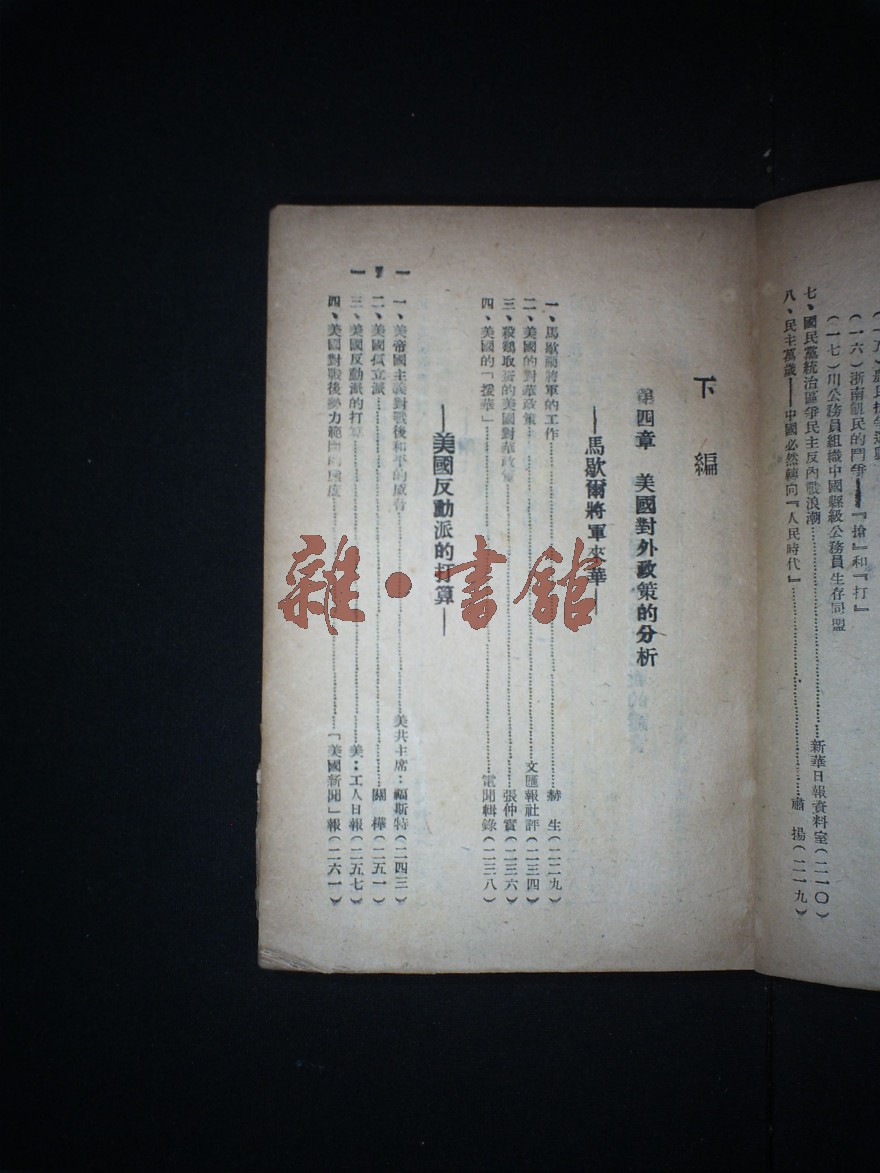 (一六)浙南飢民的鬥爭——『搶』和『打』
(一七)川公務員組織中國縣級公務員生存同盟
七、國民黨統治區爭民主反內戰浪潮……新華日報資料室(二一〇)
八、民主萬歲——中國必然轉向『人民時代』……肅 揚(二一九)
下 編
第四章 美國對外政策的分析
——馬歇爾將軍來華——
一、馬歇爾將軍的工作……赫 生(二二九)
二、美國的對華政策……文匯報社評(二三四)
三、殺鷄取蛋的美國對華政策……張仲實(二三六)
四、美國的「援華」……電聞輯錄(二三八)
——美國反動派的打算——
一、美帝國主義對戰後和平的威脅……美共主席:福斯特(二四三)
二、美國孤立派……關 樺(二五一)
三、美國反動派的打算……美:工人日報(二五七)
四、美國對戰後勢力範圍的……「美國新聞」報(二六一)
雜·書館